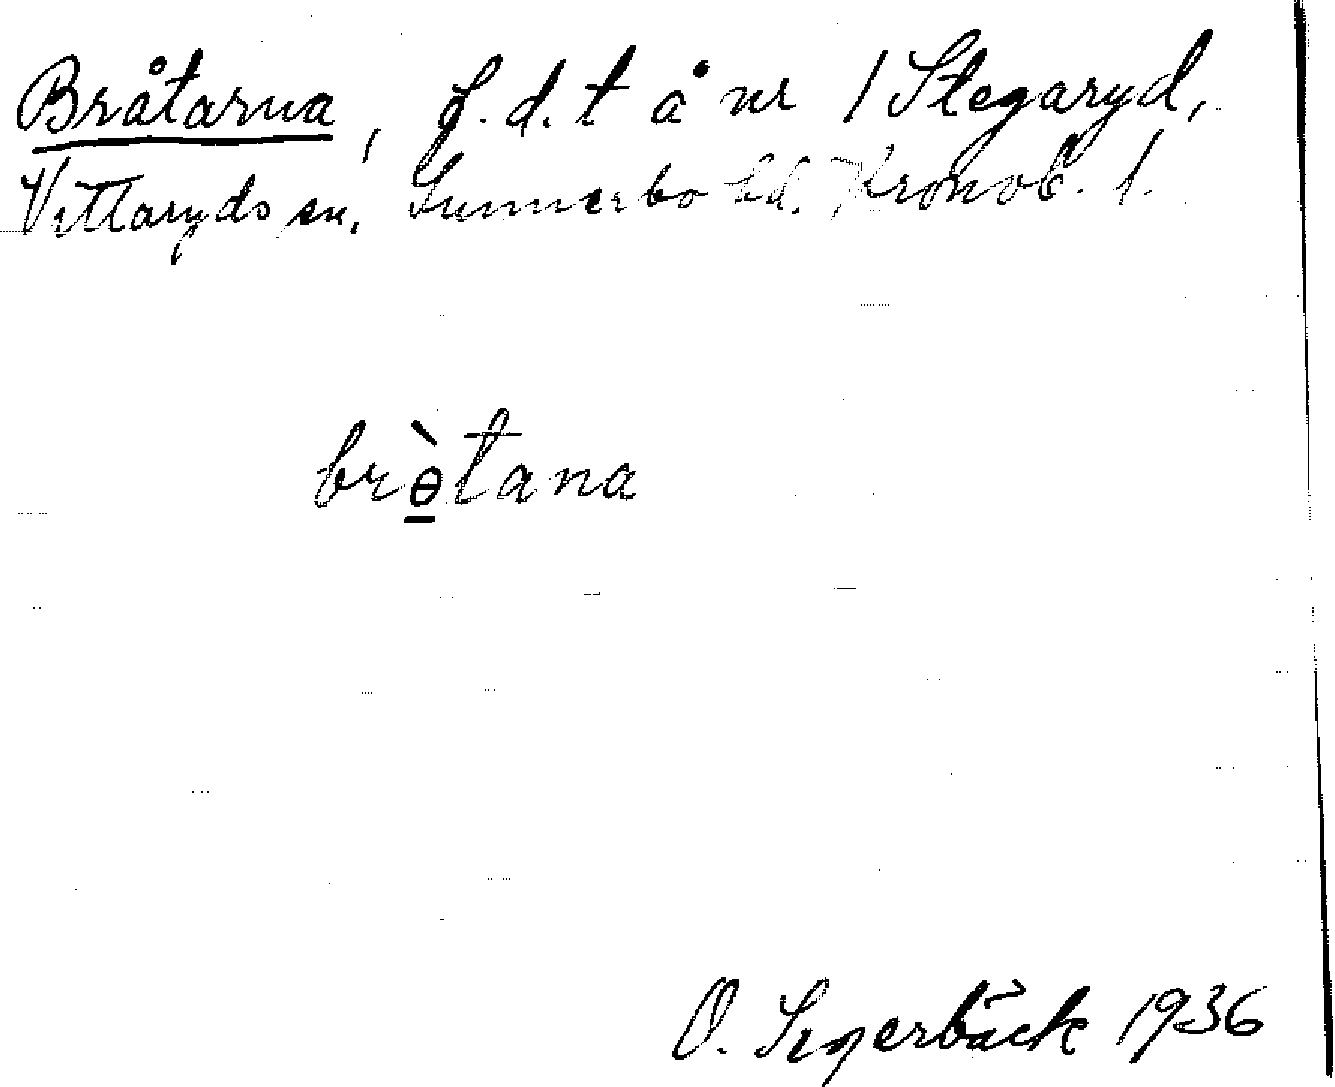 Bråtarna, f.d. t å nr 1 Stegaryd,
Vittaryds sn. Sunnerbo hd. Kronob. l.
brɵ̱̀tana
O. Segerbäck 1936